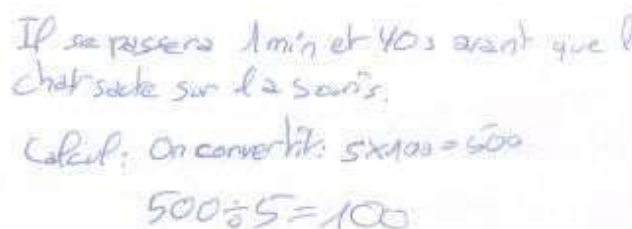 Il se passera 1min et 40s avant que l
chat saute sur la souris.
Calcul: On convertit: 5x100=500
500÷5=100